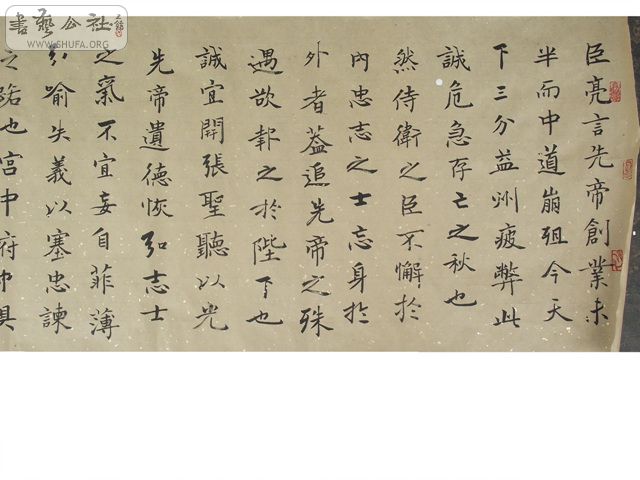 臣亮言先帝創業未
半而中道崩殂今天
下三分益州疲弊此
誠危急存亡之秋也
然侍衛之臣不懈於
內忠志之士忘身於
外者葢追先帝之殊
遇欲報之於陛下也
誠宜開張聖聽以光
先帝遺德恢弘志士
之氣不宜妄自菲薄
引喻失義以塞忠諫
之路也宮中府中具
書藝公社
WWW.SHUFA.ORG